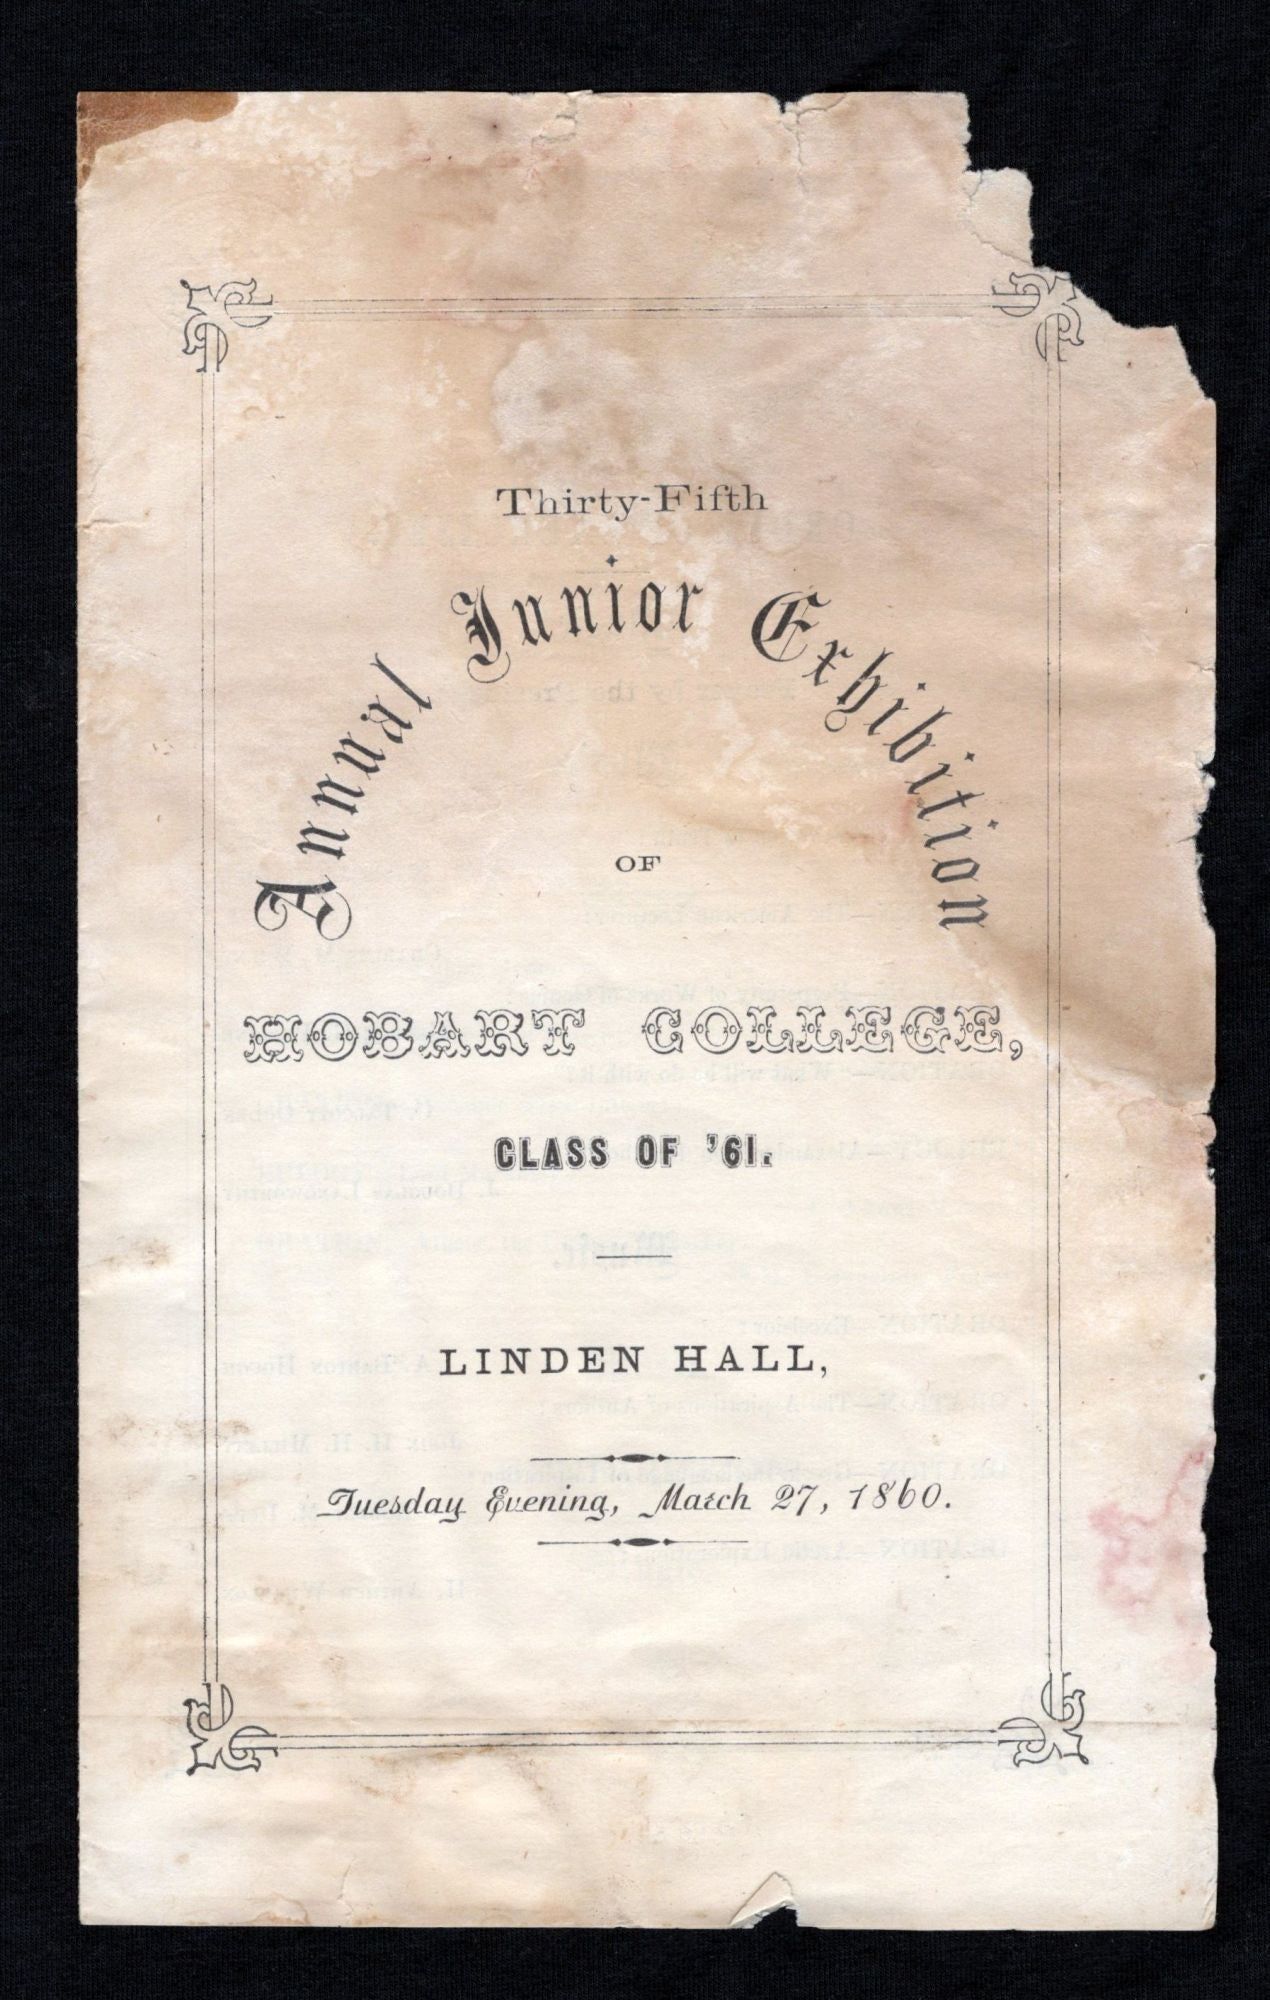 Thirty-Fifth
Annual Junior Exhibition
OF
HOBART COLLEGE,
CLASS OF '61.
LINDEN HALL,
Tuesday Evening, March 27, 1860.